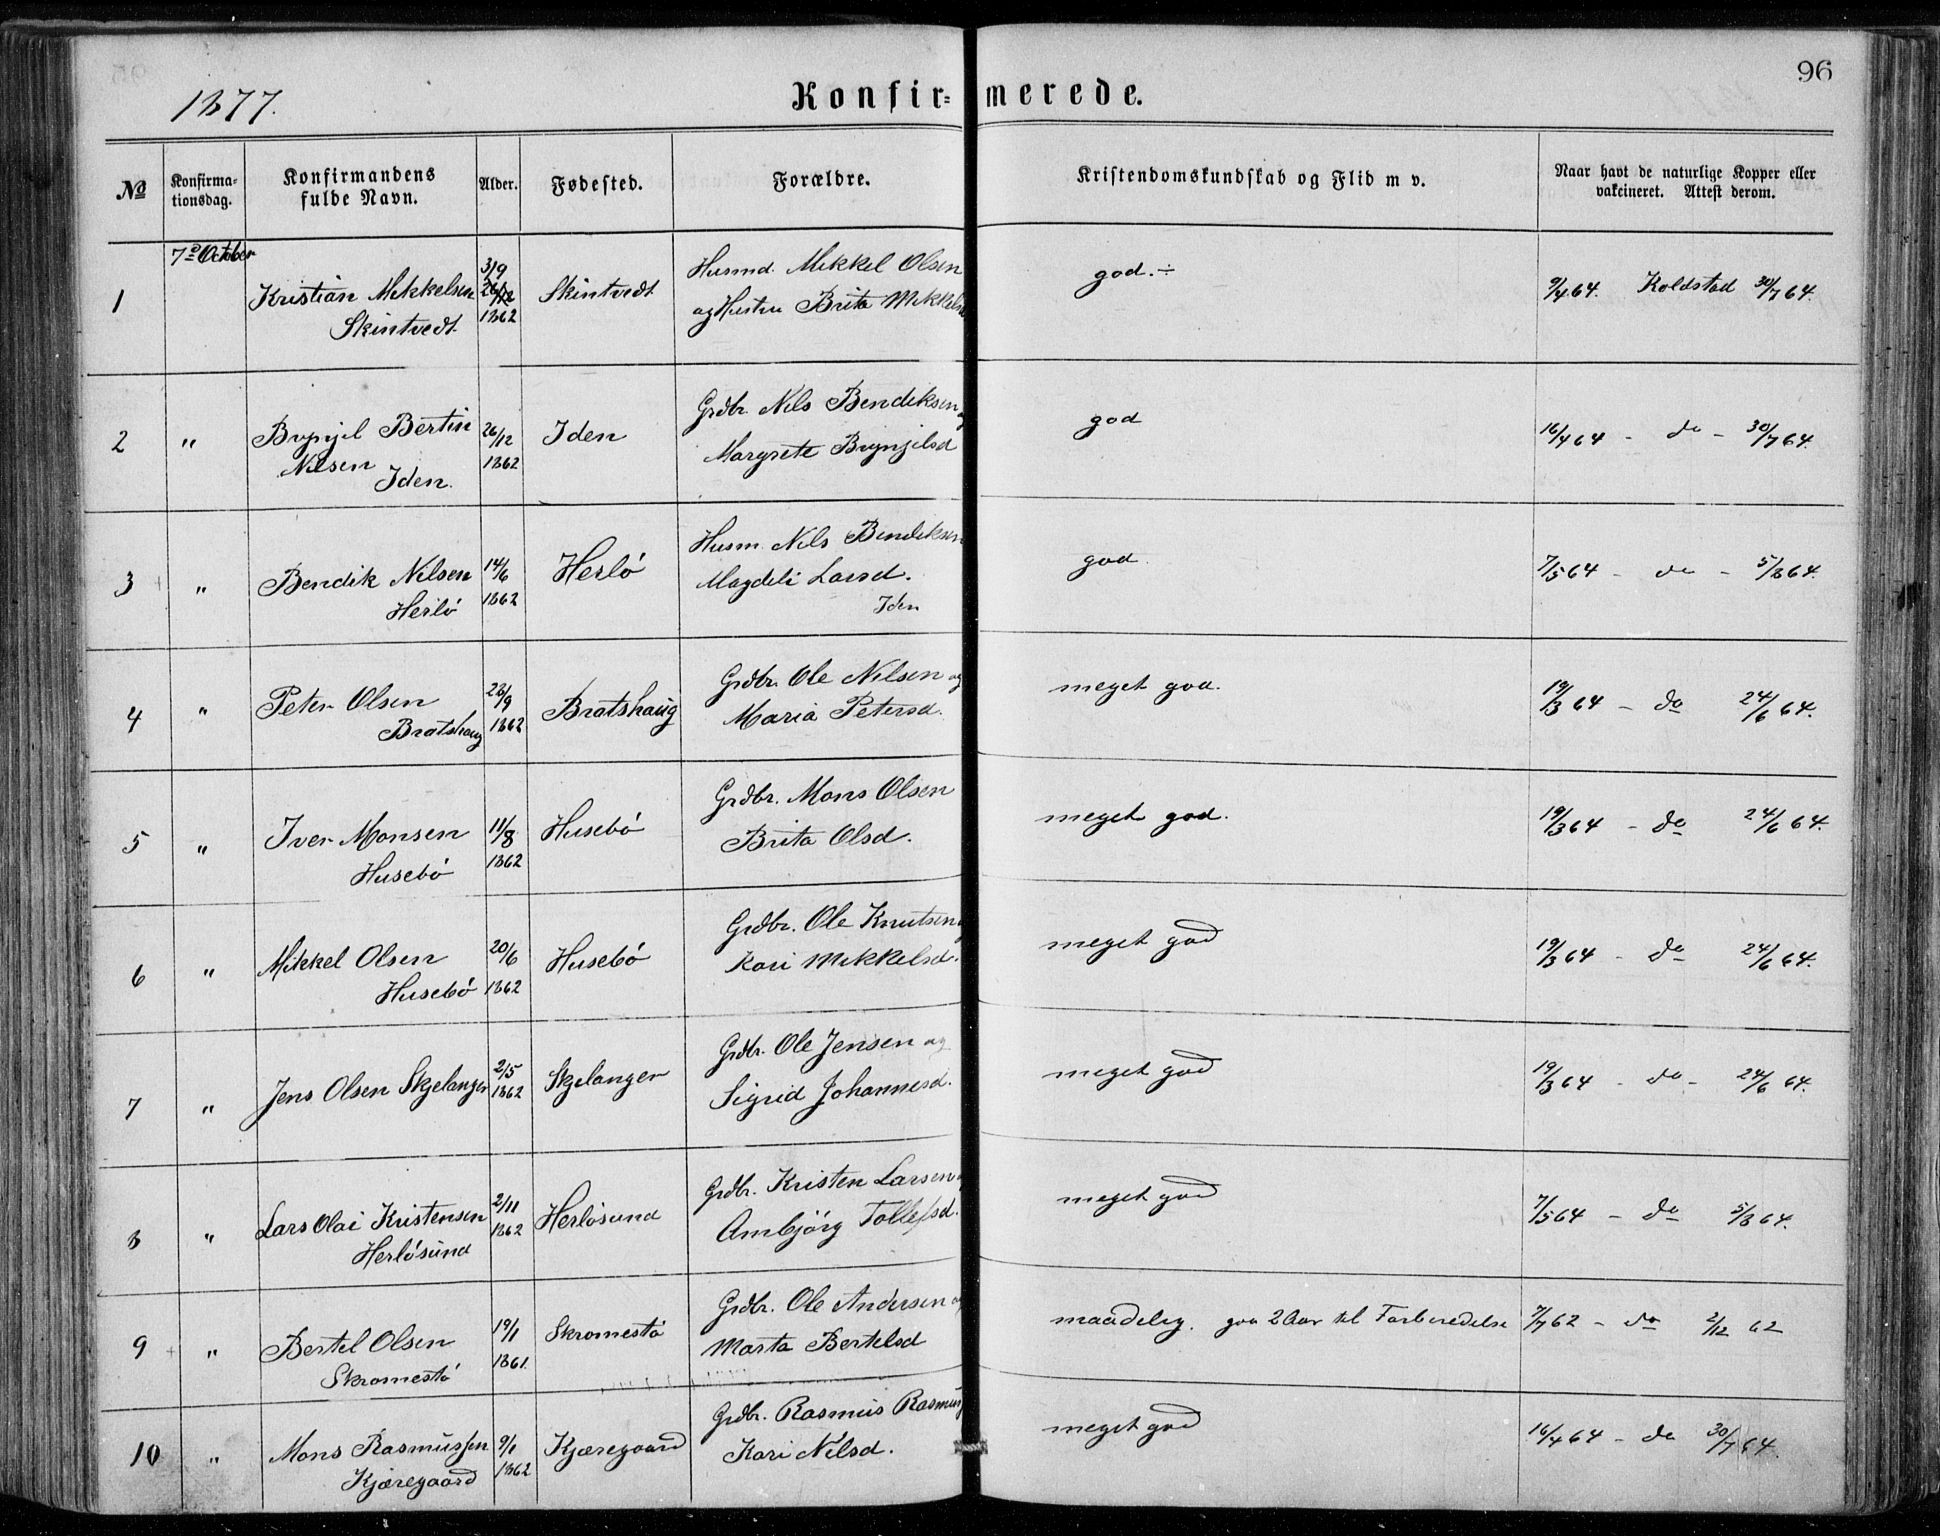 96
1877.
Konfir= merede.
No
Konfirma-
tionsdag.
Konfirmandens
fulde Navn.
Alder.
Fødested.
Forældre.
Kristendomskundskab og Flid m v.
Naar havt de naturlige Kopper eller
vakcineret. Attest derom.
1
7de October
Kristian Mikkelsen
Skintvedt
3/9
26/12
1862
Skintvedt
Husmd. Mikkel Olsen
og Hustru Brita Mikkelsd
god.÷
9/4 64. Koldstad 30/7 64.
2
"
Brynjel Bertin
Nilsen
Iden.
26/12
1862
Iden
Grdbr. Nils Bendiksen og
Margrete Brynjelsd
god
16/4 64 - do - 30/7 64.
3
"
Bendik Nilsen
Herlö
14/6
1862
Herlö
Husm. Nils Bendiksen
Magdeli Larsd.
Iden
god.
7/5 64 - do - 5/8 64.
4
"
Peter Olsen
Bratshaug
28/9
1862
Bratshaug
Grdbr. Ole Nilsen og
Maria Petersd.
meget god.
19/3 64 - do 24/6 64.
5
"
Iver Monsen
Husebö
11/8
1862
Husebö
Grdbr. Mons Olsen
Brita Olsd.
meget god.
19/3 64 - do 24/6 64.
6
"
Mikkel Olsen
Husebö
20/6
1862
Husebö
Grdbr. Ole Knutsen
Kari Mikkelsd.
meget god
19/3 64 - do 24/6 64.
7
"
Jens Olsen Skjelanger
2/5
1862
Skjelanger
Grdbr. Ole Jensen og
Sigrid Johannesd.
meget god
19/3 64 - do - 24/6 64.
8
"
Lars Olai Kristensen
Herlösund
2/11
1862
Herlösund
Grdbr. Kristen Larsen
Ambjörg Tollefsd.
meget god
7/5 64 - do 5/8 64.
9
"
Bertel Olsen
Skromestö
19/1
1861.
Skromestö
Grdbr. Ole Andersen og
Marta Bertelsd
maadelig. gaa 2 Aar til Forberedelse
7/7 62 - do 2/12 62
10
"
Mons Rasmussen
Kjæregaard
9/1
1862
Kjæregaard
Grdbr. Rasmus Rasmus
Kari Nilsd.
meget god
16/4 64 - do 30/7 64.